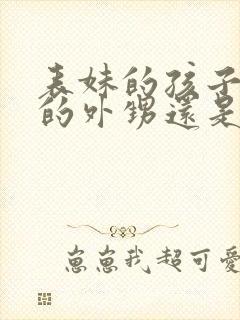 表妹的孩子
的外甥還是
崽崽我超可愛